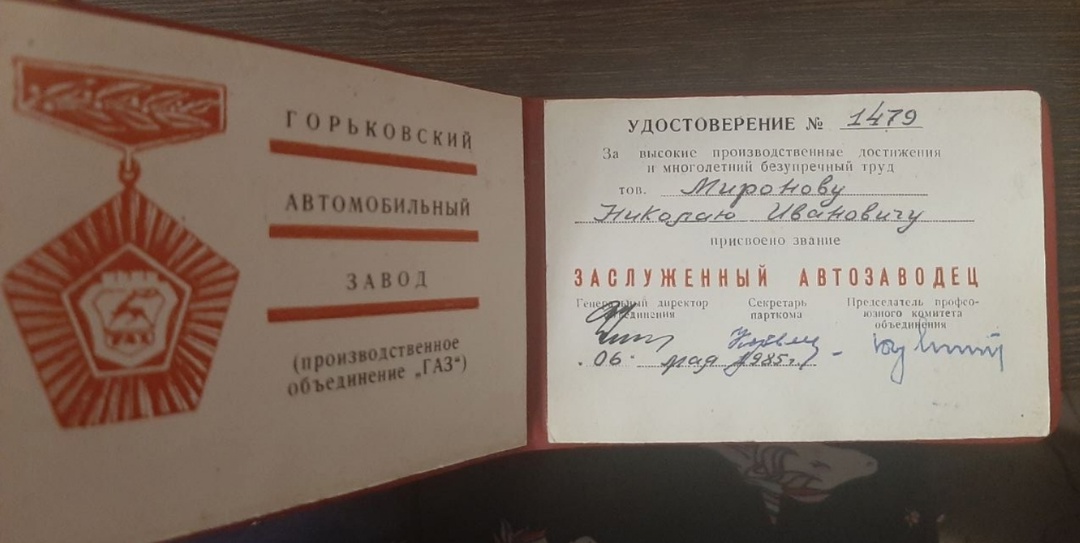 ГОРЬКОВСКИЙ
АВТОМОБИЛЬНЫЙ
ЗАВОД
(производственное
объединение „ГАЗ“)
ГАЗ
УДОСТОВЕРЕНИЕ № 1479
За высокие производственные достижения
и многолетний безупречный труд
тов. Миронову
Николаю Ивановичу
присвоено звание
ЗАСЛУЖЕННЫЙ АВТОЗАВОДЕЦ
Генеральный директор
объединения
Секретарь
парткома
Председатель профсо-
юзного комитета
объединения
06 мая 1985 г.